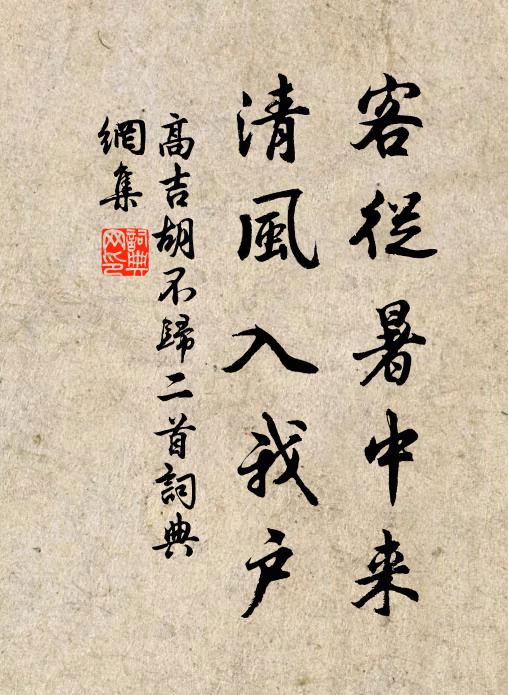 客從暑中来
清風入我戶
高吉胡不歸二首詞典
網集
詞典
网印